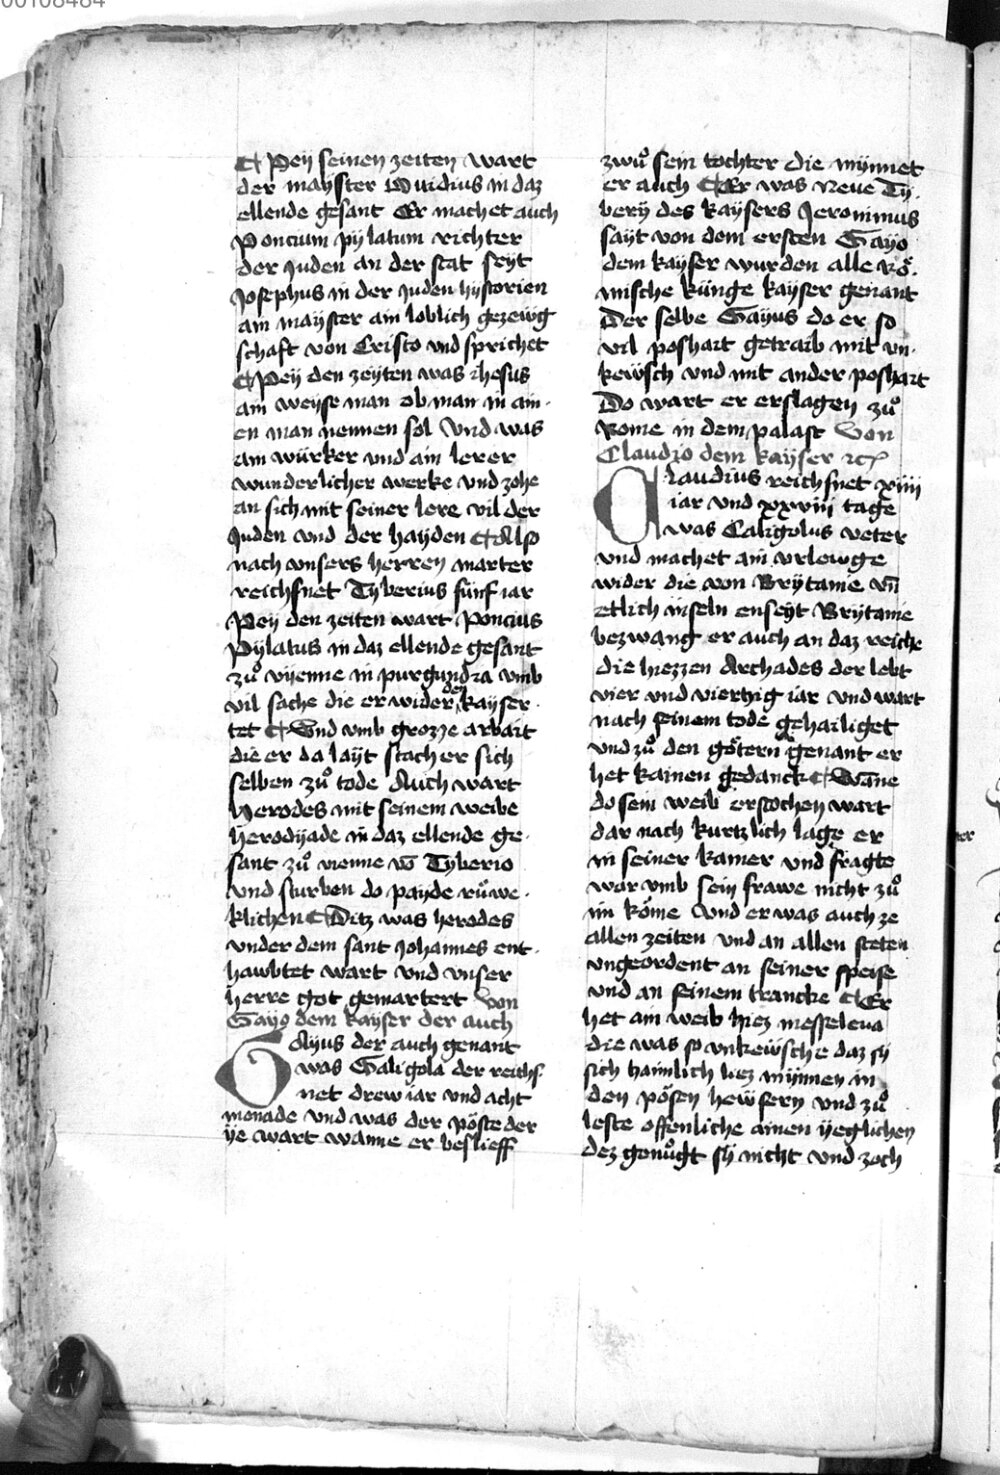 00108484
¶ Pey seinen zeiten wart
der mayster Ouidius in daz
ellende gesant Er machet auch
Poncium pylatum richter
der Juden an der stat seyt
Josephus in der Juden hystorien
ain mayster ain loblich gezewg
schaft von Cristo vnd sprichet
¶ Pey den zeyten was ihesus
ain weyse man ob man in ain-
en man nennen sol Vnd was
ain würker vnd ain lerer
wunderlicher werke vnd zohe
an sich mit seiner lere vil der
Juden vnd der hayden ¶ Also
nach vnsers herren marter
reichsnet Tyberius fünf iar
Pey den zeiten wart Poncius
Pylatus in daz ellende gesant
zuͦ vyenne in purgundia vmb
vil sache die er wider den kayser
tet ¶ Vnd vmb grozze arbait
die er da layt stach er sich
selben zuͦ tode Auch wart
Herodes mit seinem weibe
herodyade in daz ellende ge-
sant zuͦ vienne vō Tyberio
vnd sturben do payde rüwe-
klichen ¶ Ditz was herodes
vnder dem sant Johannes ent-
hawbtet wart vnd vnser
herre got gemartert Von
Gayo dem kayser der auch
Gayus der auch genant
was Galigola der reichs
net drew iar vnd acht
monade vnd was der pöste der
ye wart wanne er beslieff
zwuͦ sein tochter die mynnet
er auch ¶ Er was Neue Ty-
bery des kaysers Jeronimus
sayt von dem ersten Gayo
dem kayser wurden alle Rö-
mische künge kayser genant
Der selbe Gayus do er so
vil poshait getraib mit vn-
kewsch vnd mit ander poshait
Do wart er erslagen zuͦ
Rome in dem palast Von
Claudio dem kayser etc
Claudius reichsnet xiiii
iar vnd xxviii tage
was Caligolus veter
vnd machet ain vrlewge
wider die von Brytanie vn̄
etlich inseln enseyt Brytanie
bezwang er auch an daz reiche
die hiezzen Archades der lebt
vier vnd viertzig iar vnd wart
nach seinem tode gehailiget
vnd zuͦ den göttern genant er
het kainen gedanck ¶ Wāne
do sein weib erstochen wart
dar nach kurtzlich lage er
in seiner kamer vnd fragte
war vmb sein frawe nicht zuͦ
im köme Vnd er was auch ze
allen zeiten vnd an allen steten
vngeordent an seiner speise
vnd an seinem trancke ¶ Er
het ain weib hiez messelena
die was so vnkewsche daz sy
sich haimlich liez mynnen in
den pösen hewsern vnd zuͦ
leste offenliche ainen yeglichen
dez genuͦgt sy nicht vnd zoch